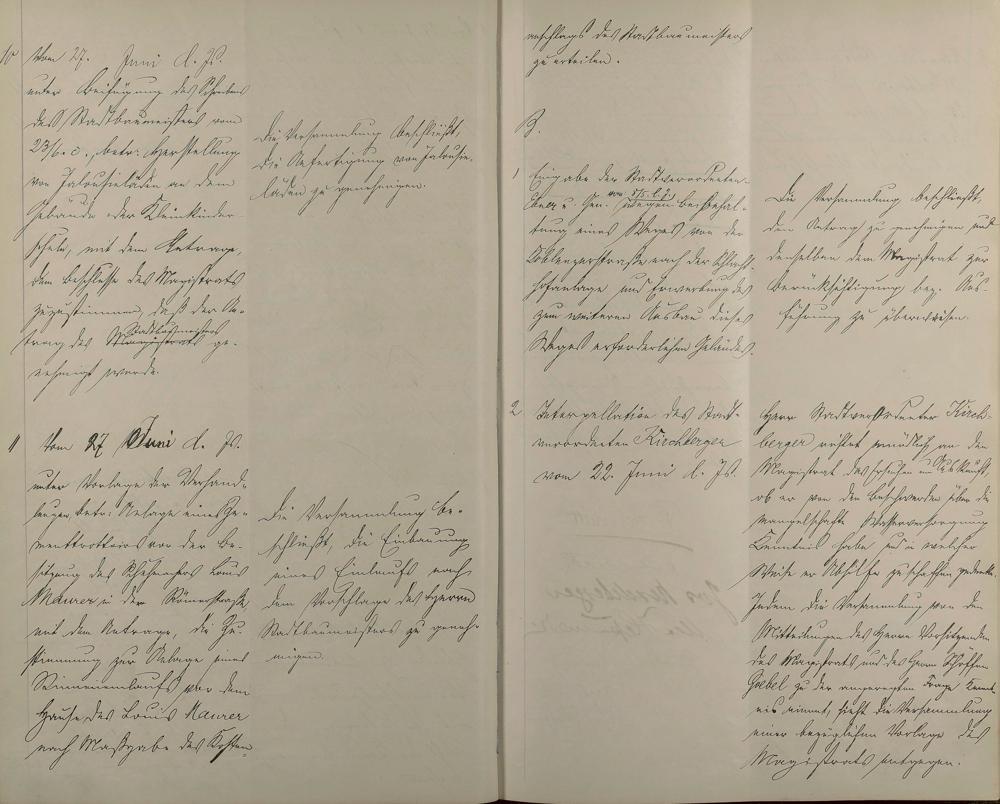 10
Vom 27. Juni d. Js.
unter Beifügung des Schreibens
des Stadtbaumeisters vom
23/6. c., betr. Herstellung
von Jalousieläden an dem
Gebäude der Kleinkinder-
schule, mit dem Antrage,
dem Beschlusse des Magistrats
zuzustimmen, daß der An-
trag des Magistrats Stadtbaumeisters ge-
nehmigt werde.
Die Versammlung beschließt,
die Anfertigung von Jalousie-
läden zu genehmigen.
11
Vom 27 Juni d. Js.
unter Vorlage der Verhand-
lungen betr. Anlage eines Ze-
menttrottoirs vor der Be-
sitzung des Louis
Maurer in der Römerstraße,
mit dem Antrage, die Zu-
stimmung zur Anlage eines
Rinneneinlaufs vor dem
Hause des Louis Maurer
nach Maßgabe des Kosten-
Die Versammlung be-
schließt, die Einbauung
eines Einlaufs nach
dem Vorschlage des Herrn
Stadtbaumeisters zu geneh-
migen.
anschlags des Stadtbaumeisters
zu erteilen.
B.
1
Eingabe der Stadtverordneten
u. Gen. vom 5/5. d. J. wegen Beibehal-
tung eines Weges von der
Coblenzerstraße nach der Schlacht-
hofanlage und Erwerbung des
zum weiteren Ausbau dieses
Weges erforderlichen Geländes.
Die Versammlung beschließt,
den Antrag zu genehmigen und
denselben dem Magistrat zur
Berücksichtigung bez. Aus-
führung zu überweisen.
2
Interpellation des Stadt-
verordneten Kirchberger
vom 22. Juni d. Js.
Herr Stadtverordneter Kirch-
berger richtet mündlich an den
Magistrat das Ersuchen um Auskunft,
ob er von den Beschwerden über die
mangelhafte Wasserversorgung
Kenntnis habe und in welcher
Weise er Abhilfe zu schaffen gedenke.
Indem die Versammlung von den
Mitteilungen des Herrn Vorsitzenden
des Magistrats und des Herrn Schöffen
Goebel zu der angeregten Frage Kennt-
nis nimmt, sieht die Versammlung
einer bezüglichen Vorlage des
Magistrats entgegen.